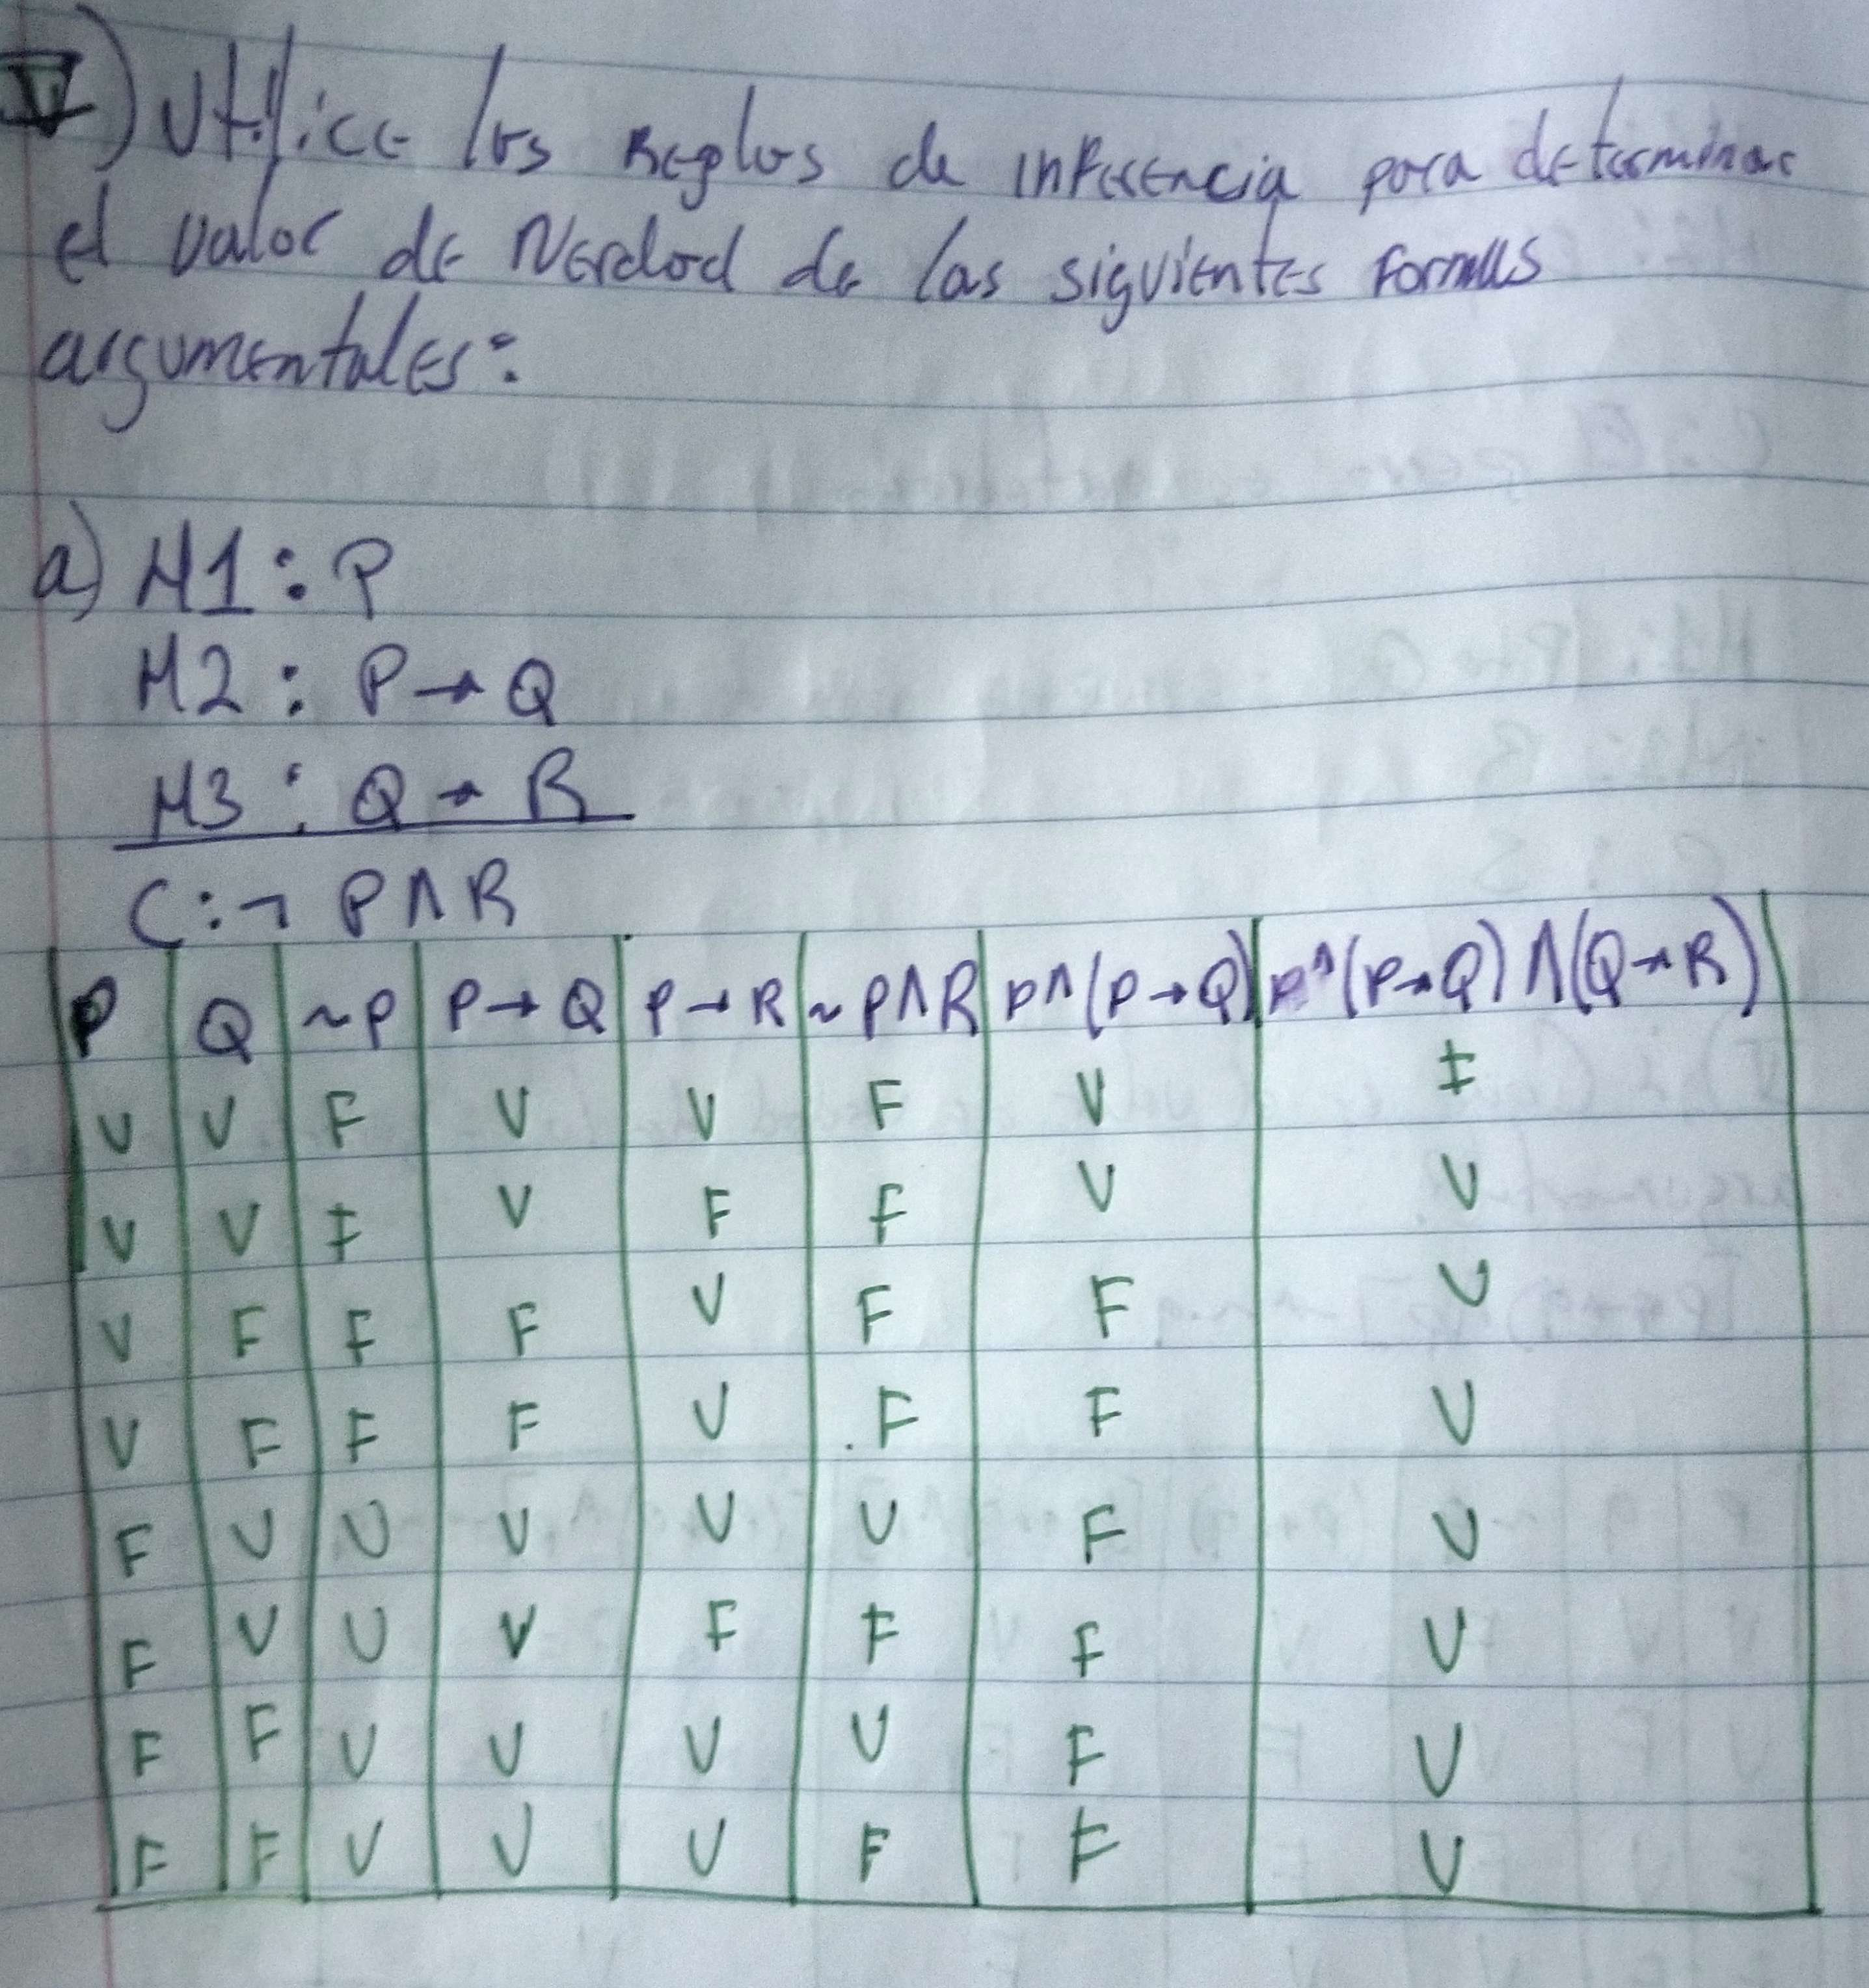 V) Utilice las Reglas de inferencia para determinar
el valor de Verdad de las siguientes formas
argumentales:
a) H1: P
H2: P → Q
H3: Q → R
C: ¬ P ∧ R
P | Q | ~P | P → Q | P → R | ~P∧R | P∧(P→Q) | P^(P→Q)∧(Q→R)
V | V | F | V | V | F | V | F
V | V | F | V | F | F | V | V
V | F | F | F | V | F | F | V
V | F | F | F | V | F | F | V
F | V | V | V | V | V | F | V
F | V | V | V | F | F | F | V
F | F | V | V | V | V | F | V
F | F | V | V | V | F | F | V